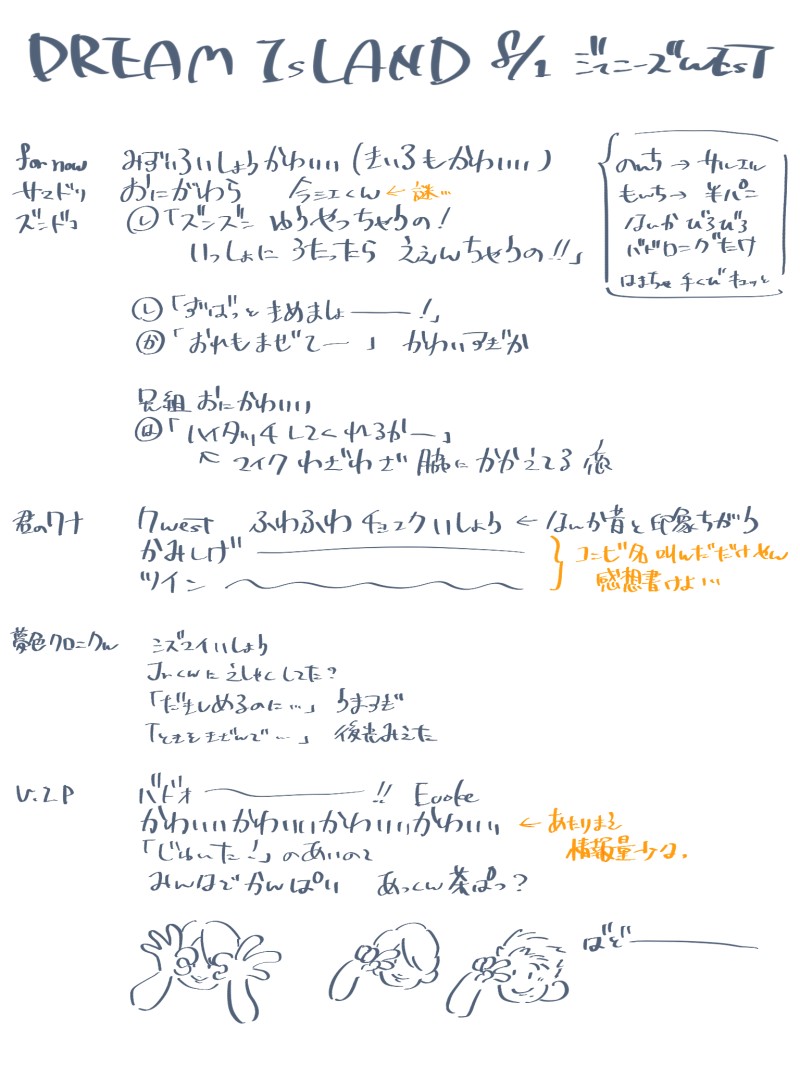 DREAM IsLAND 8/1 ジャニーズWEST
for now みずいろいしょうかわいい (きいろもかわいい)
サマドリ おにがわら 今ミエくん ← 謎…
ズンドコ し「ズンズン ゆうやっちゃうの!
いっしょに うたったら ええんちゃうの!!」
のんち → サルエル
もんち → 半パン
なんか びろびろ
バドロニグ丈
はまちゃ 手くび キュッと
し「ずばっと きめましょ——!」
か「おれもまぜてー」 かわいすぎか
兄組 おにかわいい
は「ハイタッチしてくれるかー」
↖ マイク わざわざ 脇に かかえてる
君のワナ 7west ふわふわ チュチュクいしょう ← なんか昔と印象ちがう
かみしげ ——
ツイン 〜〜
コンビ名 叫んだだけやん
感想書けよ…
夢色クロニクル ミズマイいしょう
Jrくんに えしゃくしてた?
「だきしめるのに…」 うますぎ
「ときをきざんで…」 後光みえた
V.I.P バドオ ——!!
かわいいかわいいかわいいかわいい ← あたりまえ
情報量少な.
「じゅんた!」のあいのて
みんなでかんぱい あっくん茶ぱっ?
ばど——